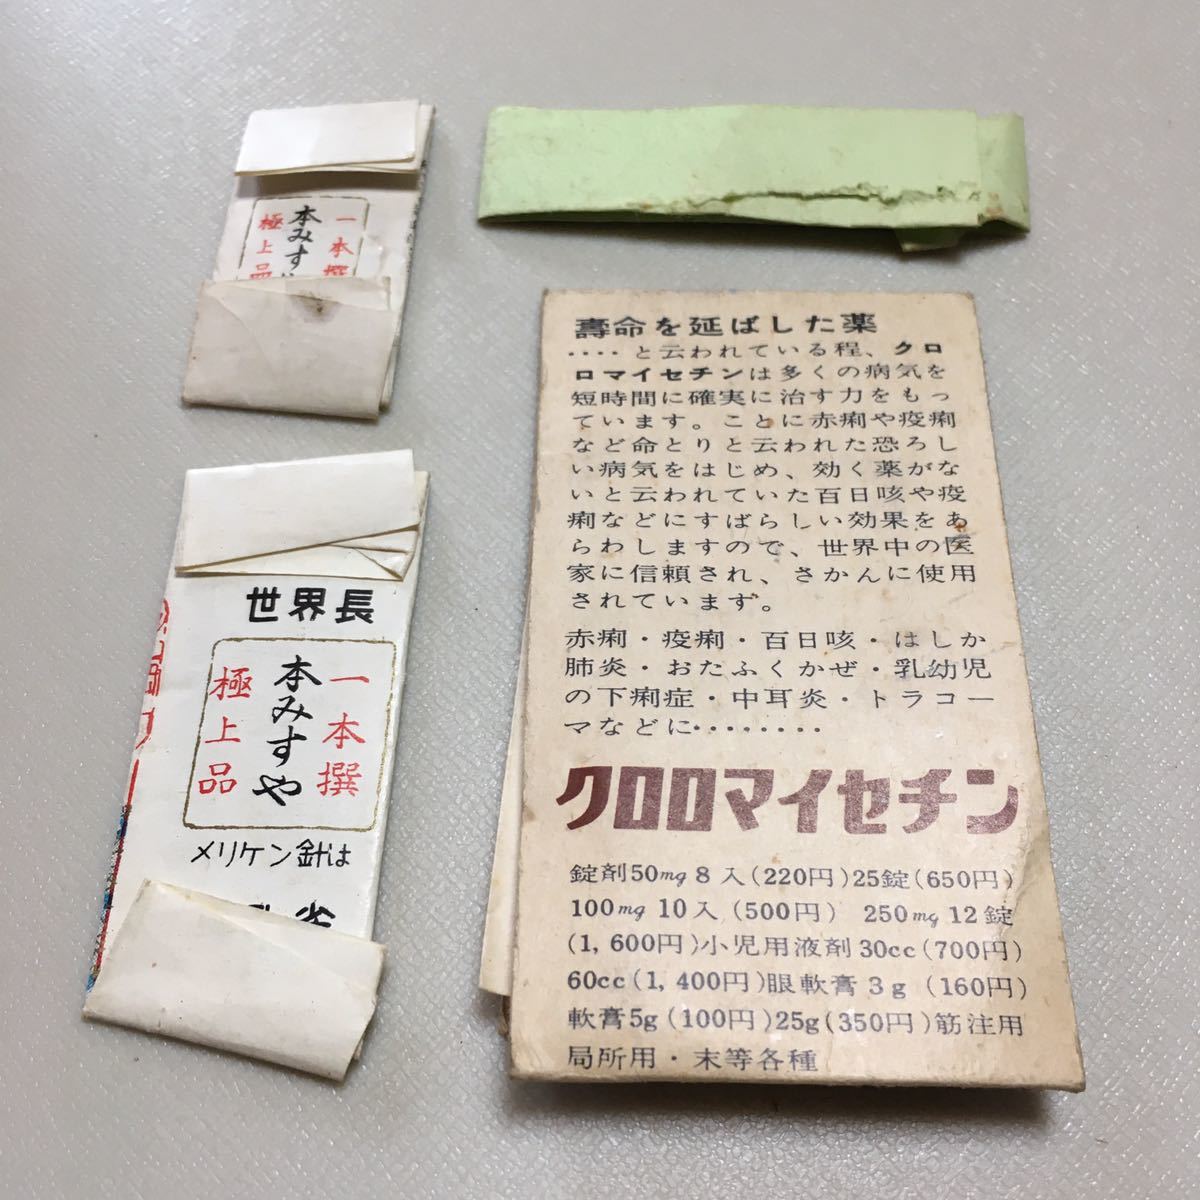 一本撰
本みすや
極上品
世界長
一本撰
本みすや
極上品
メリケン針は
壽命を延ばした薬
‥‥と云われている程、クロ
ロマイセチンは多くの病気を
短時間に確実に治す力をもっ
ています。ことに赤痢や疫痢
など命とりと云われた恐ろし
い病気をはじめ、効く薬がな
いと云われていた百日咳や疫
痢などにすばらしい効果をあ
らわしますので、世界中の医
家に信頼され、さかんに使用
されています。
赤痢・疫痢・百日咳・はしか
肺炎・おたふくかぜ・乳幼児
の下痢症・中耳炎・トラコー
マなどに‥‥‥‥
クロロマイセチン
錠剤50mg 8入(220円)25錠(650円)
100mg 10入(500円) 250mg 12錠
(1,600円)小児用液剤30cc(700円)
60cc(1,400円)眼軟膏3g (160円)
軟膏5g(100円)25g(350円)筋注用
局所用・末等各種